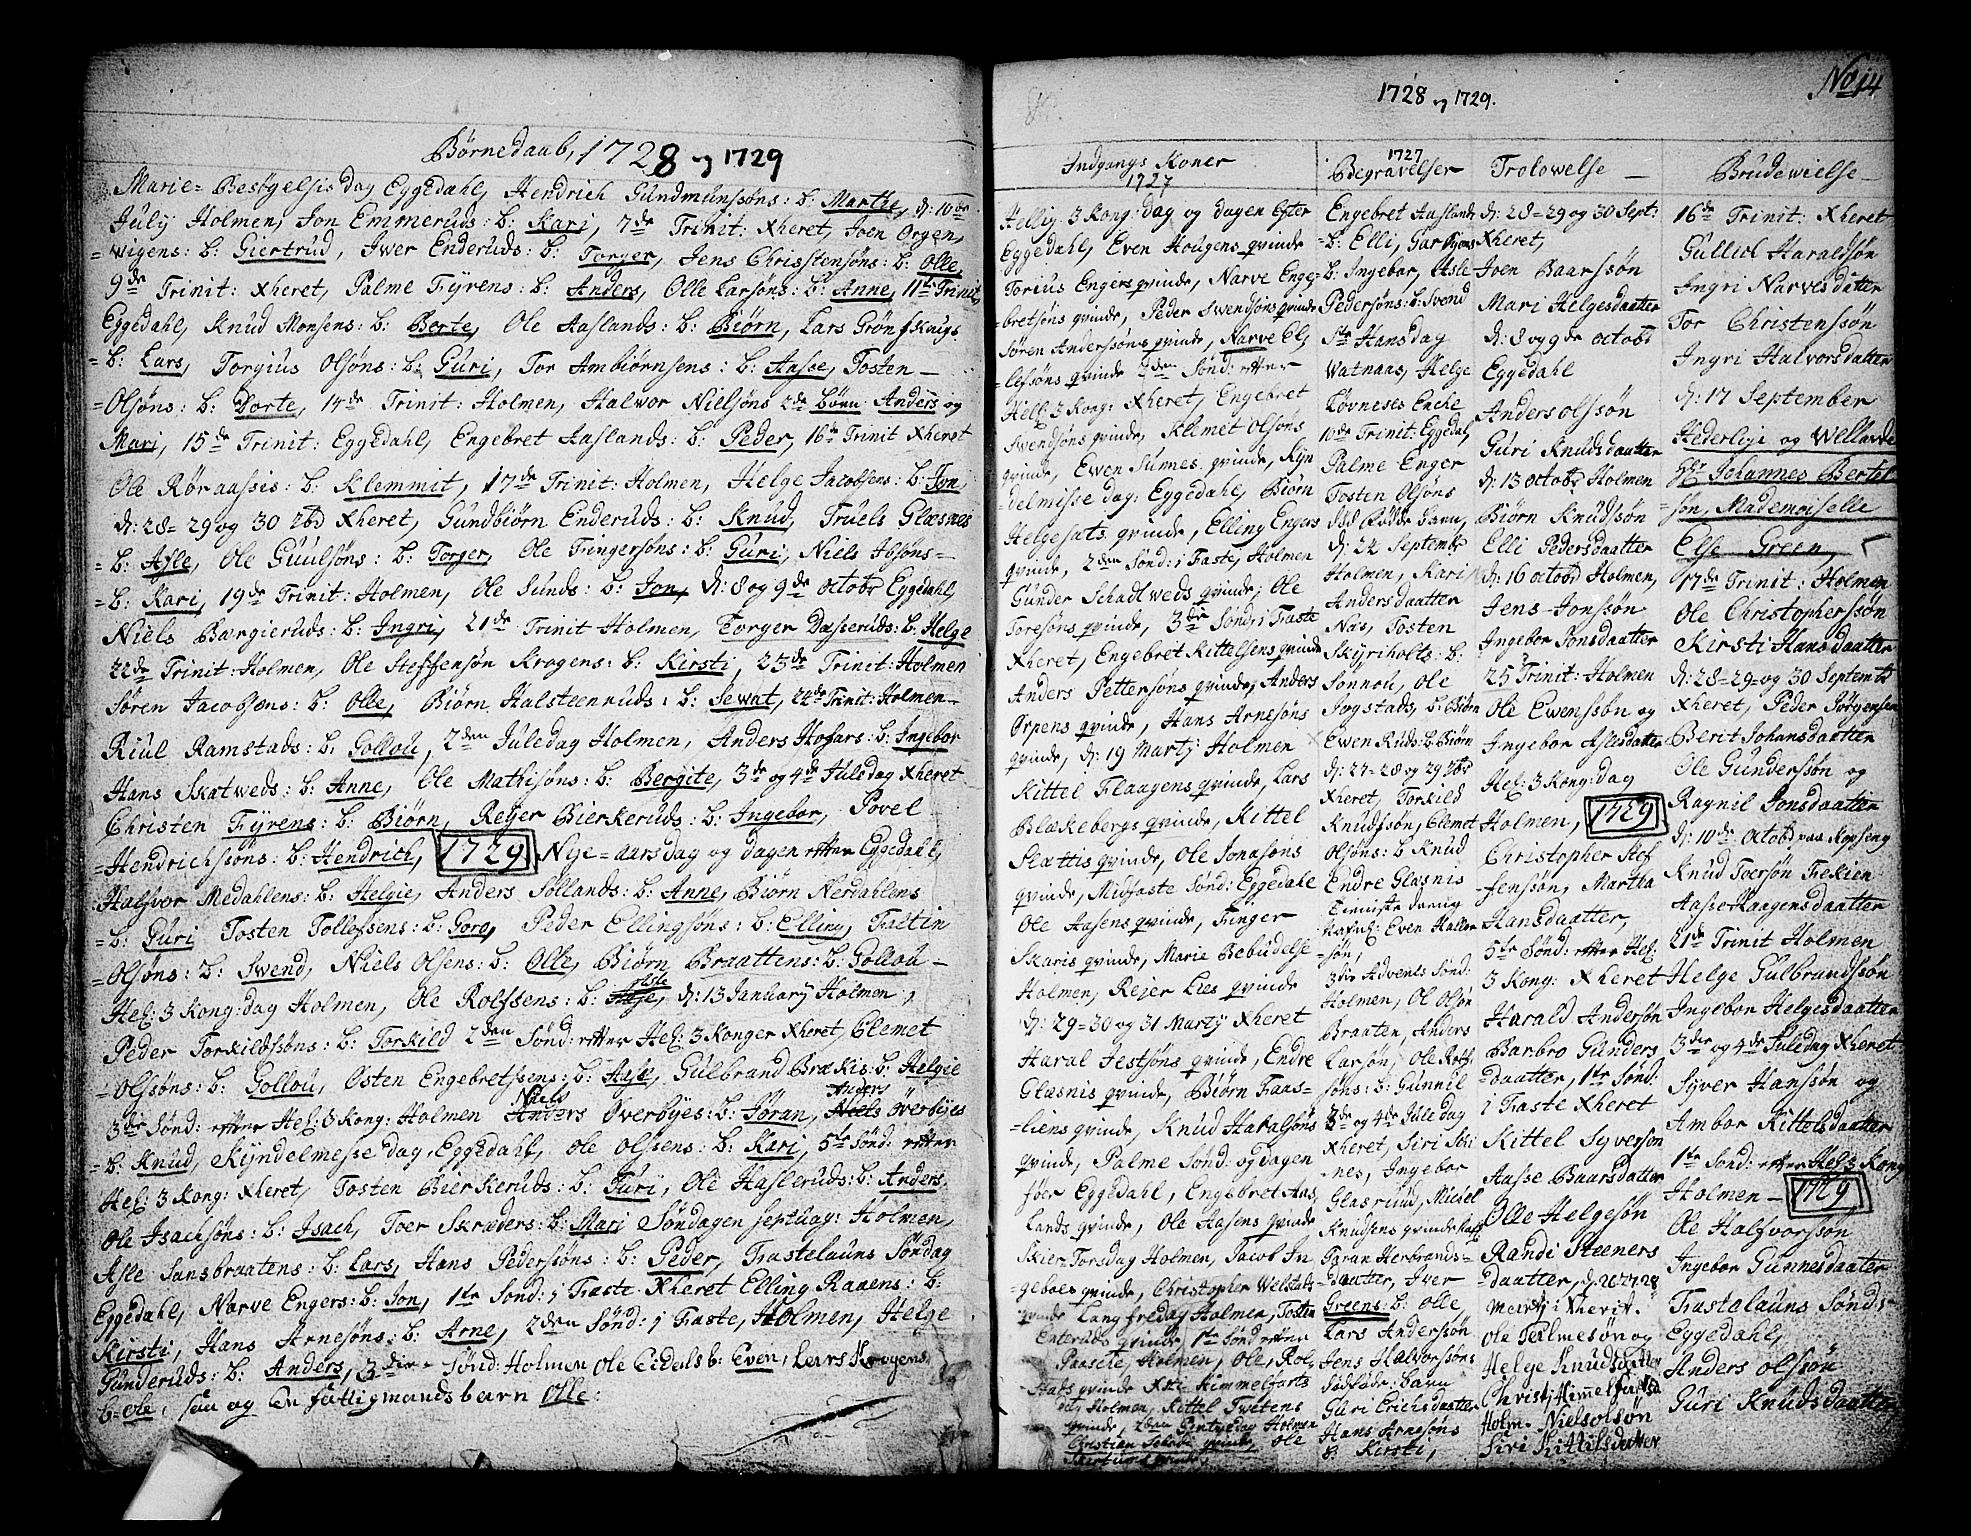 Børnedaab, 1728 og 1729
Marie=Besøgelsis dag Eggedahl, Hendrich Gundmunssøns: b: Marthe, d: 10de
July Holmen, Jon Emmeruds: b: Kari, 7de Trinit: Xheret, Joen Orgen,
=wigens: b: Giertrud, Iwer Enderuds: b: Torger, Jens Christensøns: b: Olle,
9de Trinit: Xheret, Palme Fyrens: b: Anders, Olle Larsøns: b: Anne, 11te Trinit
Eggedahl, Knud Monsens: b: Berte, Ole Aaslands: b: Biørn, Lars Grønfskougs
=b: Lars, Torgius Olsøns: b: Guri, Tor Ambiørnsens: b: Aasse, Tosten
=Olsøns: b: Dorte, 14de Trinit: Holmen, Halvor Nielsøns 2de børn Anders og
Mari, 15de Trinit: Eggedahl, Engebret Aaslands: b: Peder, 16de Trinit Xheret
Ole Røraassis: b: Klemmit, 17de Trinit: Holmen, Helge Jacobsens: b: Jon,
d: 28=29 og 30 7bd Xheret, Gundbiørn Enderuds: b: Knud, Truels Glæsnes
=b: Asle, Ole Guulsøns: b: Torger, Ole Fingersøns: b: Guri, Niels Ibsøns=
=b: Kari, 19de Trinit: Holmen, Ole Sunds: b: Jon, d: 8 og 9de octobr Eggedahl,
Niels Bærgieruds: b: Ingri, 21de Trinit Holmen, Torger Dæsseruds: b: Helge
22de Trinit: Holmen, Ole Steffensøn Krogens: b: Kirsti, 23de Trinit: Holmen
Søren Jacobsens: b: Olle, Biørn Halsteenruds: b: Sewat, 24de Trinit: Holmen
Riul Ramstads: b: Gollou, 2den Juledag Holmen, Anders Hofars: b: Ingebor
Hans Skatweds: b: Anne, Ole Mathisøns: b: Bergite, 3de og 4de Julsdag Xheret
Christen Fyrens: b: Biørn, Reyer Bierkeruds: b: Ingebor, Povel
=Hendrichsøns: b: Hendrich, 1729 Nye=aarsdag og dagen efter Eggedahl,
Halfvor Medahlens: b: Helgie, Anders Sollands: b: Anne, Biørn Nerdahlens
=b: Guri Tosten Tollefsens: b: Goro, Peder Ellingsøns: b: Elling, Faltin
=Olsøns: b: Swend, Niels Olsens: b: Olle, Biørn Braattens: b: Gollou
Hel: 3 Kong: dag Holmen, Ole Rolfsens: b: d: 13 January Holmen,
Peder Torkildssøns: b: Torkild 2den Sønd: efter Hel: 3 Konger Xheret, Clemet
=Olsøns: b: Gollou, Osten Engebretssens: b: Aase, Gulbrand Brækis: b: Helgie
Niels Anders
3die Sønd: efter Hel: 3 Kong: Holmen Anders Overbyes: b: Søran, Niels Överbyes
=b: Knud, Kyndelmesse dag, Eggedahl, Ole Olssens: b: Kari, 5te Sønd: efter
Hel: 3 Kong: Xheret, Tosten Bierkeruds: b: Turi, Ole Hasleruds: b: Anders
Ole Isachsøns: b: Isach, Toer Skruders: b: Mari Søndagen septuag: Holmen,
Asle Sansbraatens: b: Lars, Hans Pederssøns: b: Peder, Fastelauns Søndag
Eggedahl, Narve Engers: b: Jon, 1te Sønd: i Faste Xheret Elling Raaens: b:
Kirsti, Hans Arnesøns: b: Arne, 2den Sønd: i Faste, Holmen, Helge
Gunderuds: b: Anders, 3die Sønd: Holmen Ole Eidals b: Even, Lars Krogens
b: ole, saa og En fattigmands barn Olle:
No 14
1728 og 1729.
Indgangs Koner
1727
Hellig 3 Kong: dag og dagen Efter
Eggedahl, Even Hougens qvinde
Torius Engers qvinde, Narve Enge=
=bretsøns qvinde, Peder Swendsøns qvinde
Søren Anderssøns qvinde, Narve El,
=lefsøns qvinde 2den Sønd: etter
Hell: 3 Kong: Xheret, Engebret
Swendsøns qvinde, Klemet Olsøns
qvinde, Ewen Sunnes qvinde, Kyn
=delmisse dag: Eggedahl, Biørn
Helgesæts qvinde, Elling Engers
qvinde, 2den Sønd: i Faste, Holmen
Gunder Schadtweds qvinde, Ole
Toresøns qvinde, 3die Sønd: i Faste
Xheret, Engebret Kittelsens qvinde
Anders Pettersøns qvinde, Anders
Orpens qvinde, Hans Arnesøns
qvinde, d: 19 Marty Holmen
Kittel Flaagens qvinde, Lars
Blækebergs qvinde, Kittel
Slættis qvinde, Ole Jonasøns
qvinde, Midfaste Sønd: Eggedahl
Ole Aasens qvinde, Finger
Skaris qvinde, Marie Bebudelse
Holmen, Rejer Lies qvinde
d: 29=30 og 31 Marty Xheret
Haral Jestsøns qvinde, Endre
Glæsnis qvinde, Biørn Faas=
=liens qvinde, Knud Haralsøns
qvinde, Palme Sønd: og dagen
føer Eggedahl, Engebret Aas,
Lands qvinde, Ole Aasens qvinde
Skier=Torsdag Holmen, Jacob In
=geboes qvinde, Christopher Welstads
qvinde Lang fredag Holmen, Tosten
Enteruds qvinde, 1te Sønd etter
Paaske, Holmen, Ole, Rol,
=Stads qvinde Xsti Himmelfarts
dag Holmen, Kittel Twetens
qvinde, 2den Pintzedag Holmen
Christian qvinde, Ole
qvinde,
1727
Begravelser
Engebret Aaslands
=b: Elli,
=b: Ingebor, Asle
Pedersøns: b: Svend
Ste Hansdag
Watnaas, Helge
Løvneses Enche
10de Trinit: Eggedal
Palme Enger
Tosten Olsøns
død fødde barn,
d: 22 Septembr
Holmen, Kari
Andersdaatter
Næs, Tosten
Skyriholts: b:
Sonnou, Ole
Jogstads, b: Biørn
Ewen Ruds: b: Biørn
d: 27=28 og 29 7br
Xheret, Torkild
Knudssøn, Clemet
Olsøns: b Knud
Endre Glæsnis
Tieniste dreng
Nafnl: Even Hallvor
søn,
3die Advents Sønd:
Holmen, Ol Olsøn
Braaten, Anders
Larsøn, Ole Rolf,
søns: b: Gunnil
3de og 4de Juledag
Xheret, Siri Ski
nes, Ingebor
Glasrud, Michel
Knudsens qvinde
Taran Herbrands=
=daatter, Iver
Greens: b: Olle,
Lars Anderssøn
Jens Halvorssøns
dødføde: barn
Guri Erichsdaatter
Hans Arnesøns
b: Kirsti,
Trolowelse
d: 28=29 og 30 Sept:
Xheret,
Joen Baarssøn
Mari Helgesdaatter
d: 8 og 9de octobd
Eggedahl
Anders olssøn
Guri Knudsdaatter
d: 13 octobd Holmen
Biørn Knudssøn
Elli Pedersdaatter
d: 16 octobd Holmen,
Jens Jonssøn
Ingebor Jonsdaatter
25 Trinit: Holmen
Ole Ewenssøn og
Ingebor Aslesdaatter
Hel: 3 Kong: dag
Holmen, 1729
Christopher Stef
=fenssøn, Martha
Hansdaatter,
5te Sønd: etter Hel:
3 Kong: Xheret
Harald Andersøn
Barbro Gunders
=daatter, 1te Sønd:
i Faste Xheret
Kittel Syversøn
Aasse Baarsdatter
Olle Helgesøn
Randi Steeners
=daatter, d: 26 27 28
Martj i Xherit.
Ole Palmesøn og
Helge Knudsdatter
Christj Himmelfartsd
Holm. Niels olsøn
Siri Kittilsdatter
Brudewielse
16de Trinit: Xheret
Gullich Haraldsøn
Ingri Narvesdatter
Tor Christenssøn
Ingri Halvorsdatter
d: 17 September
Hederlige og Wellærde
Hr: Johannes Bertel
=søn, Mademoiselle
Else Green,
17de Trinit: Holmen
Ole Christopherssøn
Kirsti Hansdaatter
d: 28=29= og 30 Septembd
Xheret, Peder Jørgensen
Berit Johansdaatter
Ole Gunderssøn og
Ragnil Jonsdaatter
d: 10de octobd paa Kopseng
Knud Toersøn Frekien
Aasse Haagensdaatter
21de Trinit Holmen
Helge Gulbrandssøn
Ingebor Helgesdaatter
3die og 4de Juledag Xheret
Syver Hanssøn og
Ambor Kittelsdaatter
1te Sønd: etter Hel 3 Kong
Holmen 1729
Ole Halfvorssøn
Ingebor Gunnesdaatter
Fastelauns Sønd:
Eggedahl,
Anders olssøn
Guri Knudsdaatter